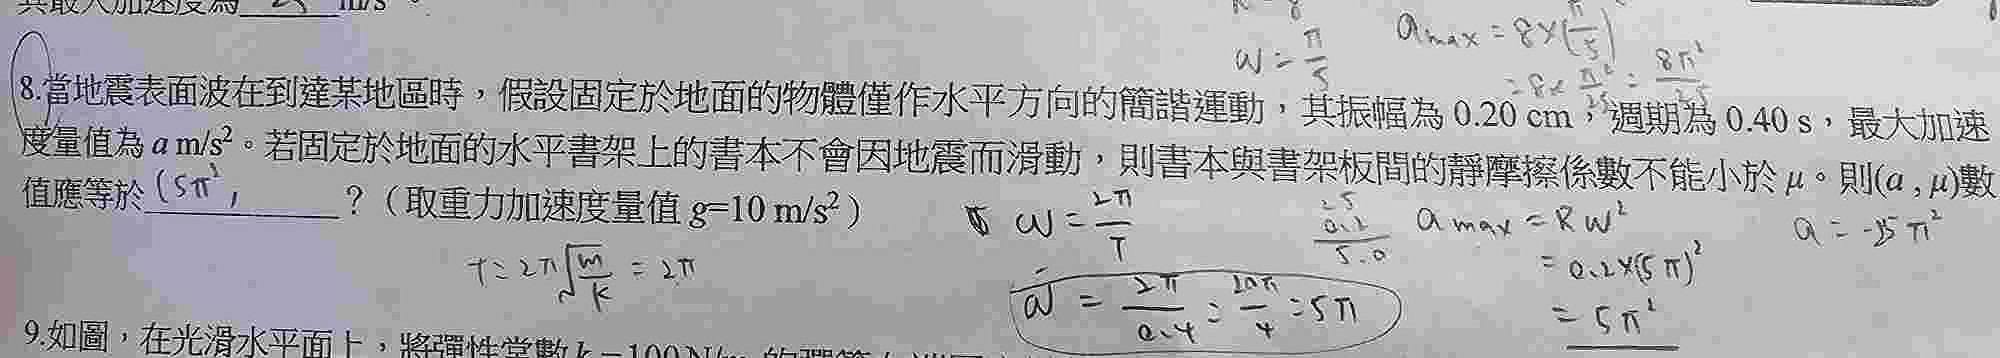 其最大加速度為 25 m/s²。
ω=π/5
a max = 8×(π/5)
=8×π²/25=8π²/25
8.當地震表面波在到達某地區時，假設固定於地面的物體僅作水平方向的簡諧運動，其振幅為 0.20 cm，週期為 0.40 s，最大加速
度量值為 a m/s²。若固定於地面的水平書架上的書本不會因地震而滑動，則書本與書架板間的靜摩擦係數不能小於 μ。則(a , μ)數
值應等於(5π²,？（取重力加速度量值 g=10 m/s²）
T=2π√m/k=2π
ω=2π/T
ω=2π/0.4=20π/4=5π
25
0.2
5.0
a max=Rω²
=0.2×(5π)²
=5π²
9.如圖，在光滑水平面上，將彈性常數 k=100 N/m 的彈簧